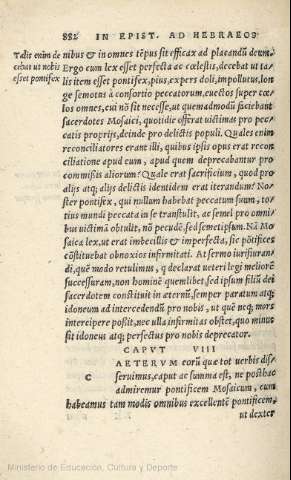 882 IN EPIST. AD HEBRAEOS
Talis enim de
cebat ut nobis
esset pontifex
nibus & in omnes tēpus sit efficax ad placandū deum.
Ergo cum lex esset perfecta ac cœlestis, decebat ut ta
lis item esset pontifex, pius, expers doli, impollutus, lon
ge semotus à consortio peccatorum, euectus super cœ
los omnes, cui nō sit necesse, ut quemadmodū faciebant
sacerdotes Mosaici, quotidie offerat uictimas pro pec
catis proprijs, deinde pro delictis populi. Quales enim
reconciliatores erant illi, quibus ipsis opus erat recon
ciliatione apud eum, apud quem deprecabantur pro
commißis aliorum? Quale erat sacrificium, quod pro
alijs atq; alijs delictis identidem erat iterandum? No=
ster pontifex, qui nullum habebat peccatum suum, to=
tius mundi peccata in se transtulit, ac semel pro omni
bus uictimā obtulit, nō pecudē, sed semetipsum. Nā Mo
saica lex, ut erat imbecillis & imperfecta, sic pōtifices
cōstituebat obnoxios infirmitati. At sermo iurisiuran=
di, quē modo retulimus, q declarat ueteri legi meliorē
successuram, non hominē quemlibet, sed ipsum filiū dei
sacerdotem constituit in æternū, semper paratum atq;
idoneum ad intercedendū pro nobis, ut quē necq; mors
intercipere poßit, nec ulla infirmitas obstet, quo minus
sit idoneus atq; perfectus pro nobis deprecator.
CAPVT VIII
C AETERVM eorū quæ tot uerbis dis=
seruimus, caput ac summa est, ne posthac
admiremur pontificem Mosaicum, cum
habeamus tam modis omnibus excellentē pontificem,
ut dexter
Ministerio de Educación, Cultura y Deporte